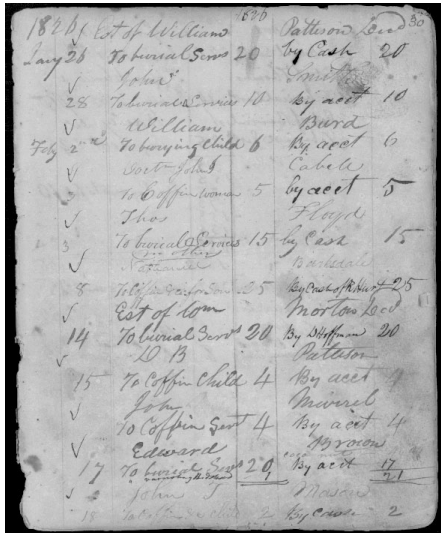 1826 Est of William 1826 Patteson Decd 30
Jany 26 To burial Servs 20 by Cash 20
John
28 To burial Services 10 By acct 10
William Burd
Feby 2nd To burying Child 6 By acct 6
Doct John J Cabell
3 To Coffin woman 5 by acct 5
Tho Floyd
3 To burial Services 15 by Cash 15
mother
Barksdale
8 25 By Cash of R Hurt 25
Est of Tom Mortons Decd
14 To burial Servs 20 By D Hoffman 20
D B Patteson
15 To Coffin Child 4 By acct 4
John
To Coffin Sert 4 By acct 4
Edward Brown
17 To burial Servs 20 By acct 17
1 21
John J Mason
18 2 By Cash 2